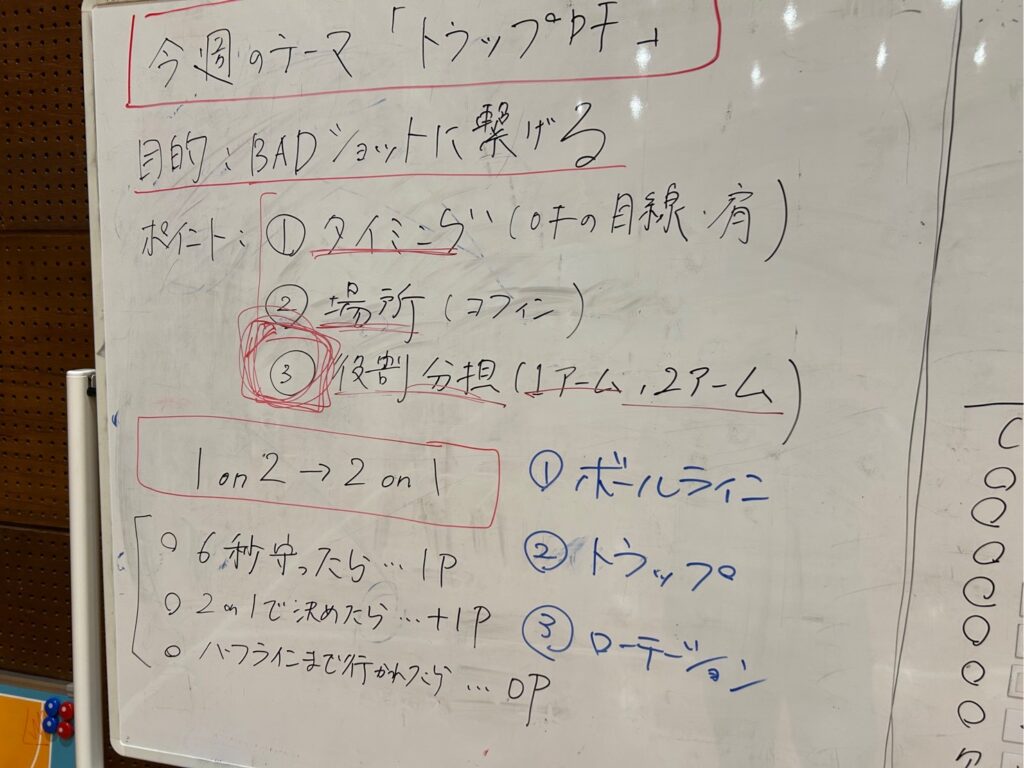 今週のテーマ「トラップDF」
目的：BADショットに繋げる
ポイント：① タイミング（OFの目線・肩）
② 場所（コフィン）
③ 役割分担（1アーム，2アーム）
1 on 2 → 2 on 1
○ 6秒守ったら…1P
○ 2 on 1で決めたら…+1P
○ ハーフラインまで行かれたら…0P
① ボールライン
② トラップ
③ ローテーション